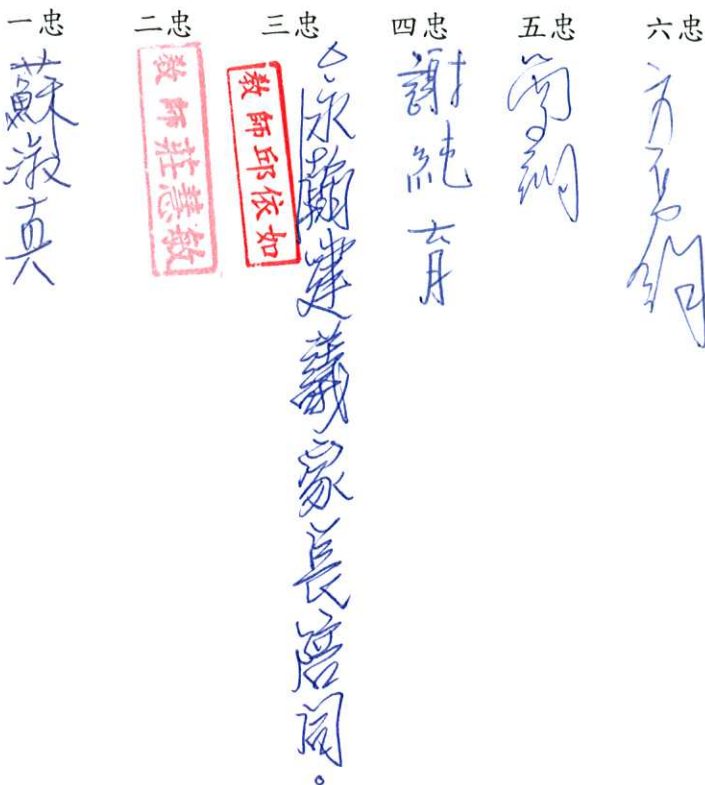 一忠 二忠 三忠 四忠 五忠 六忠
蘇淑真
教師莊慧敏
教師邱依如
建議家長陪同。
謝純育